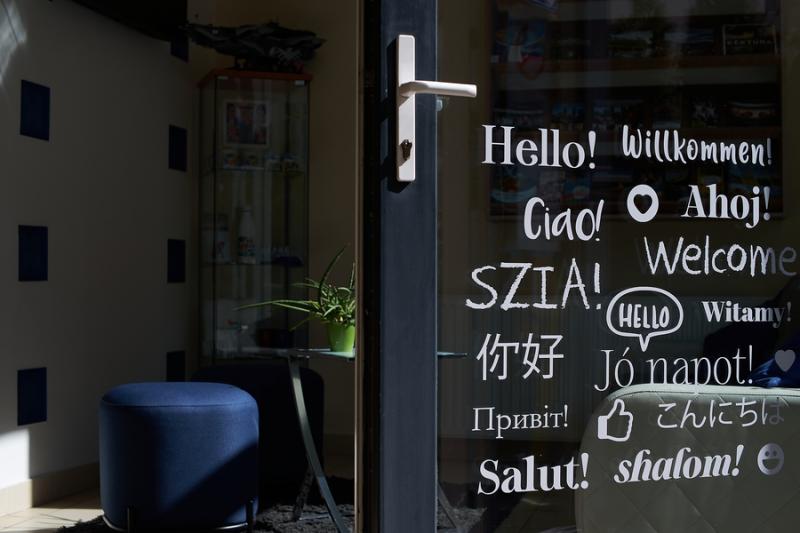 Hello! Willkommen!
Ciao! Ahoj!
Welcome
SZIA!
HELLO Witamy!
你好 Jó napot!
Привіт! こんにちは
Salut! shalom!